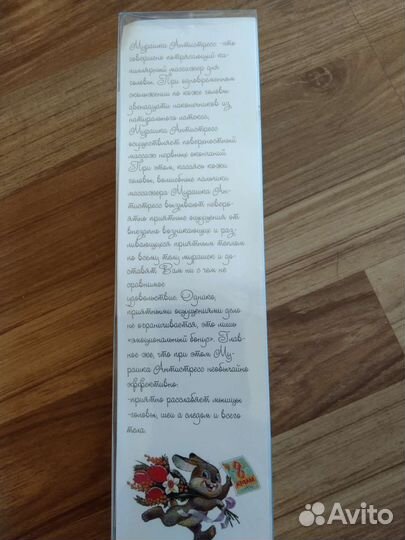 Мурашка Антистресс -это
совершенно потрясающий ка-
пиллярный массажер для
головы. При одновременном
скольжении по коже головы
двенадцати наконечников из
натурального натекса,
Мурашка Антистресс
осуществляет поверхностный
массаж нервных окончаний.
При этом, касаясь кожи
головы, волшебные палочки
массажера Мурашка Ан-
тистресс вызывают неверо-
ятно приятные ощущения от
внезапно возникающих и раз-
ливающихся приятным теплом
по всему телу мурашек и до-
ставят Вам ни с чем не
сравнимое
удовольствие. Однако,
приятными ощущениями дело
не ограничивается, это лишь
«эмоциональный бонус». Глав-
ное же, что при этом Му-
рашка Антистресс необычайно
эффективно:
-приятно расслабляет мышцы
-головы, шеи а следом и всего
тела.
8
МАРТА
Avito